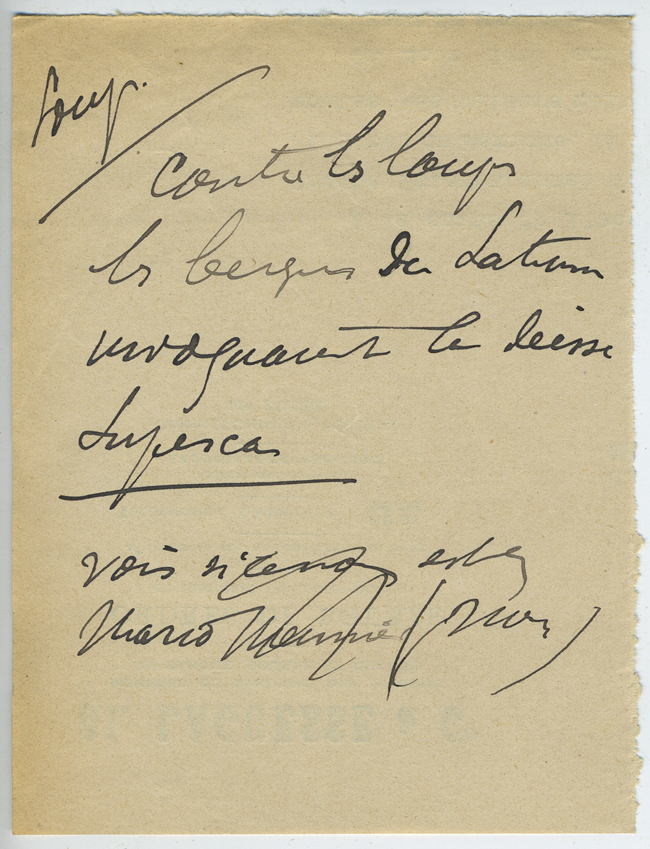 Loup.
contre les loups
les bergers du Latium
invoquaient la déesse
Lupesca
vois si
Mario Meunier